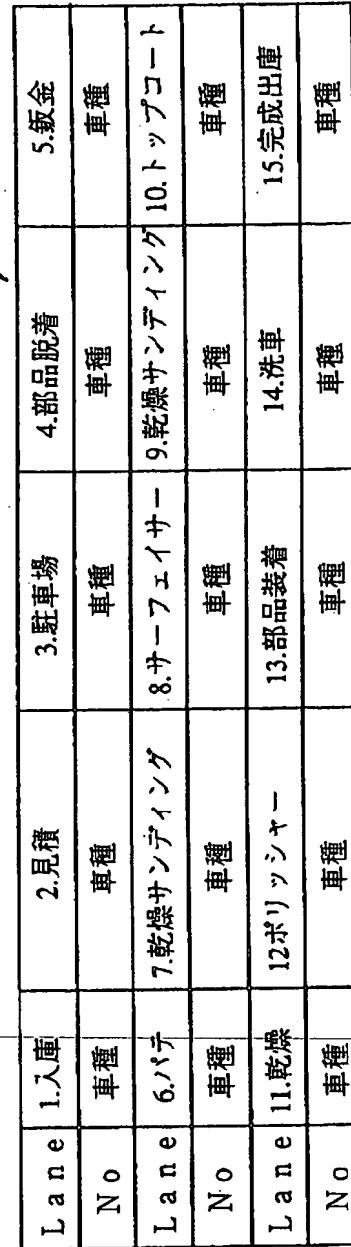 Lane 1.入庫 2.見積 3.駐車場 4.部品脱着 5.鈑金
No 車種 車種 車種 車種 車種
Lane 6.パテ 7.乾燥サンディング 8.サーフェイサー 9.乾燥サンディング 10.トップコート
No 車種 車種 車種 車種 車種
Lane 11.乾燥 12ポリッシャー 13.部品装着 14.洗車 15.完成出庫
No 車種 車種 車種 車種 車種